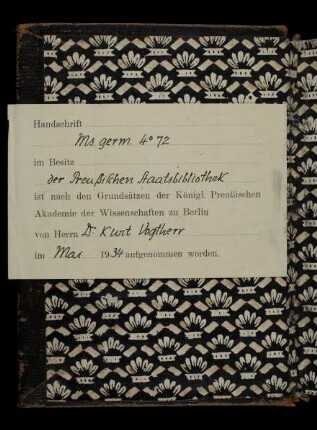 Handschrift
Ms. germ. 4° 72
im Besitz
der Preußischen Staatsbibliothek
ist nach den Grundsätzen der Königl. Preußischen
Akademie der Wissenschaften zu Berlin
von Herrn Dr. Kurt Vogtherr
im Mai 1934 aufgenommen worden.